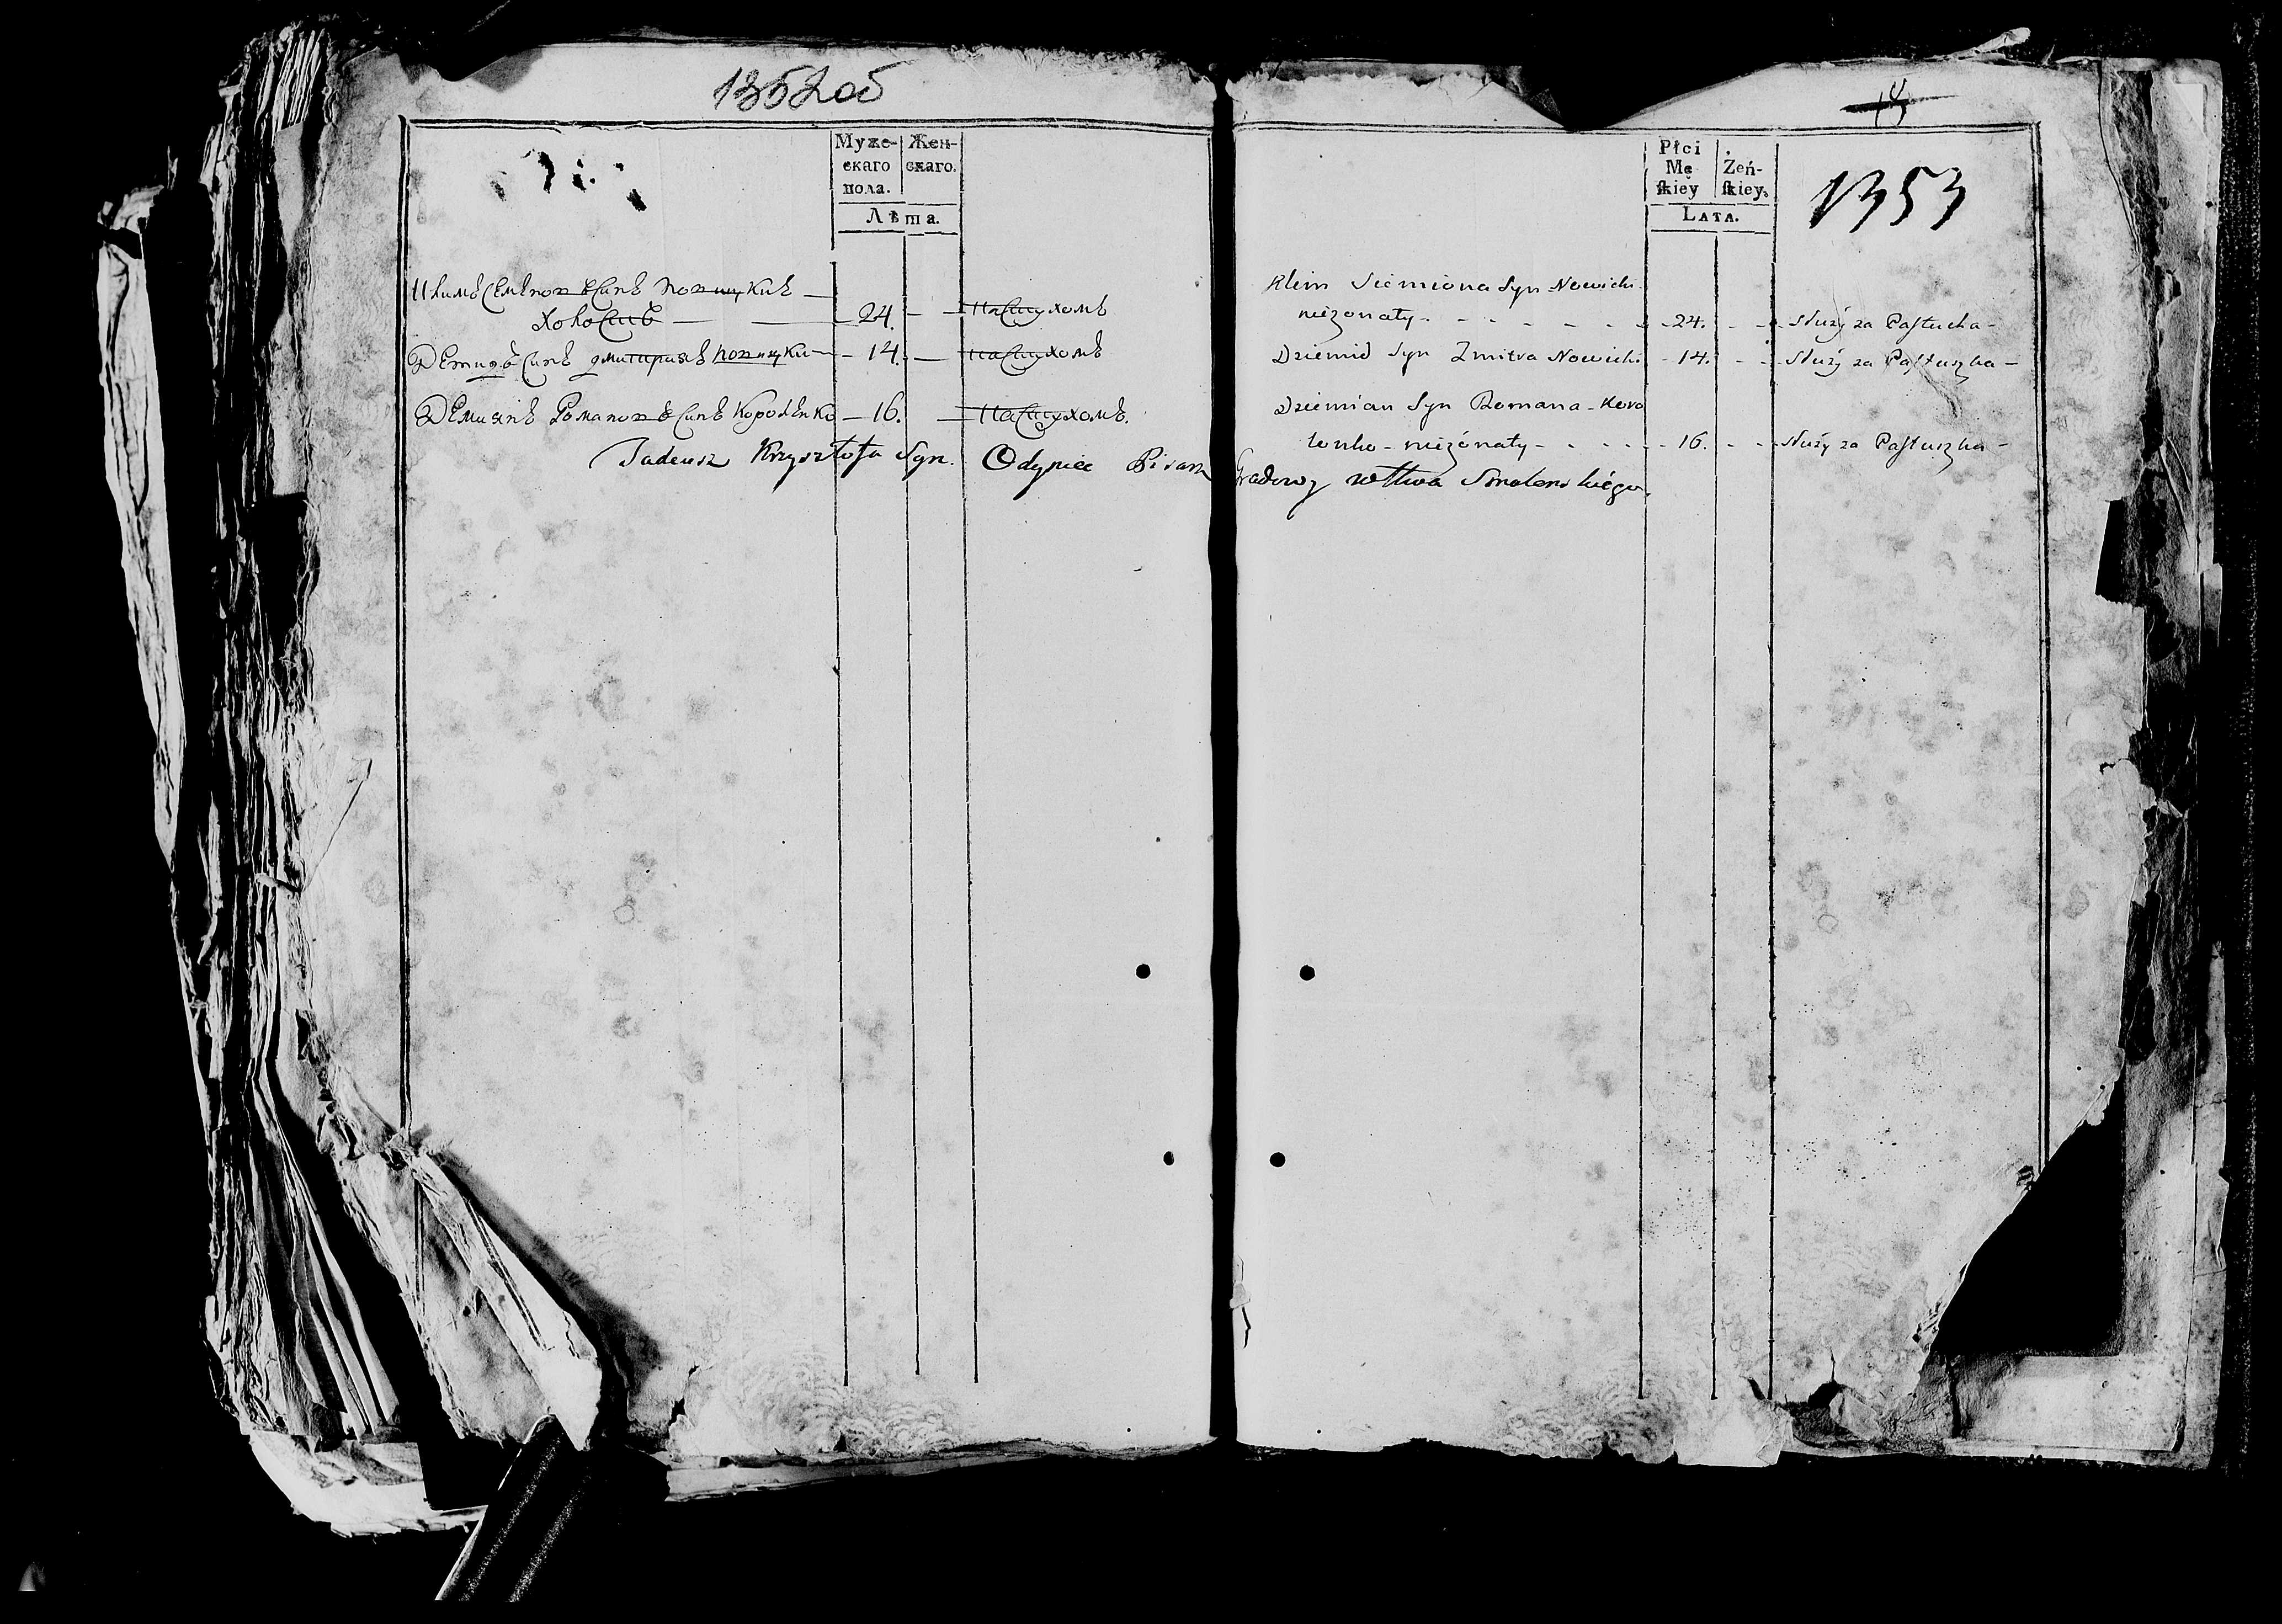 1352об
Муже- Жен-
скаго скаго.
пола.
Лѣта.
Климъ Семеновъ Сынъ Новицкиъ —
холостъ — — 24. — — пастухомъ
Демидъ Сынъ Дмитриявъ Новицки — — 14. — пастухомъ
Демиянъ Романовъ Сынъ Короленко — 16. — пастухомъ.
Tadeusz Krzysztofa Syn. Odyniec Pisarz Gradowy wttwa Smolenskiego.
14
Płci
Mę Żeń-
skiey skiey.
Lata.
1353
Klim Siemiona Syn Nowicki
nieżonaty - - - - - - 24. - - służy za Pastucha -
Dziemid Syn Zmitra Nowicki - 14. - - służy za Pastuszka -
Dziemian Syn Romana - Koro
lenko - nieżonaty - - - - - 16. - - służy za Pastuszka -